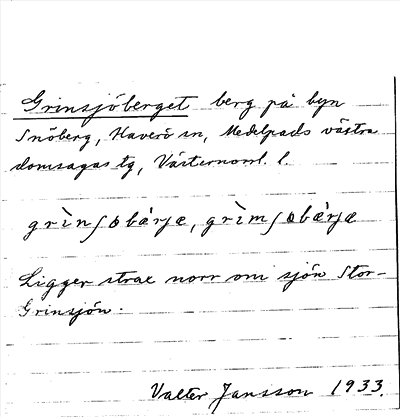 Grinsjöberget berg på byn
Snöberg, Haverö sn, Medelpads västra
domsagas tg, Västernorrl. l.
grìnʃobær̀jæ, grìmʃobær̀jæ
Ligger strax norr om sjön Stor-
Grinsjön.
Valter Jansson 1933.